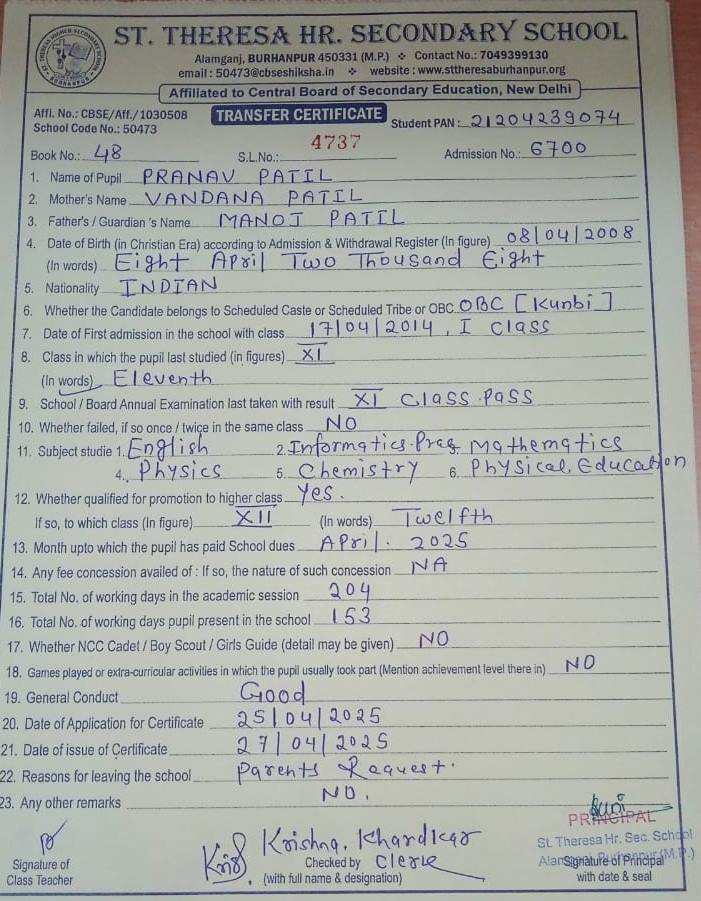 ST. THERESA HR. SECONDARY SCHOOL
Alamganj, BURHANPUR 450331 (M.P.) ❖ Contact No.: 7049399130
email: 50473@cbseshiksha.in ❖ website: www.sttheresaburhanpur.org
Affiliated to Central Board of Secondary Education, New Delhi
Affi. No.: CBSE/Aff./1030508 TRANSFER CERTIFICATE Student PAN: 21204239074
School Code No.: 50473
Book No.: 48 S.L.No.: 4737 Admission No.: 6700
1. Name of Pupil PRANAV PATIL
2. Mother's Name VANDANA PATIL
3. Father's / Guardian 's Name MANOJ PATIL
4. Date of Birth (in Christian Era) according to Admission & Withdrawal Register (In figure) 08/04/2008
(In words) Eight April Two Thousand Eight
5. Nationality INDIAN
6. Whether the Candidate belongs to Scheduled Caste or Scheduled Tribe or OBC OBC [Kunbi]
7. Date of First admission in the school with class 17/04/2014, I Class
8. Class in which the pupil last studied (in figures) XI
(In words) Eleventh
9. School / Board Annual Examination last taken with result XI Class Pass
10. Whether failed, if so once / twice in the same class NO
11. Subject studie 1. English 2. Informatics Prac Mathematics
4. Physics 5. Chemistry 6. Physical Education
12. Whether qualified for promotion to higher class Yes.
If so, to which class (In figure) XII (In words) Twelfth
13. Month upto which the pupil has paid School dues April. 2025
14. Any fee concession availed of : If so, the nature of such concession NA
15. Total No. of working days in the academic session 204
16. Total No. of working days pupil present in the school 153
17. Whether NCC Cadet / Boy Scout / Girls Guide (detail may be given) NO
18. Games played or extra-curricular activities in which the pupil usually took part (Mention achievement level there in) NO
19. General Conduct Good
20. Date of Application for Certificate 25/04/2025
21. Date of issue of Certificate 27/04/2025
22. Reasons for leaving the school Parents Request.
23. Any other remarks NO.
PRINCIPAL
Krishna. Khardikar St. Theresa Hr. Sec. School
Signature of Checked by Clerk Signature of Principal
Class Teacher (with full name & designation) with date & seal